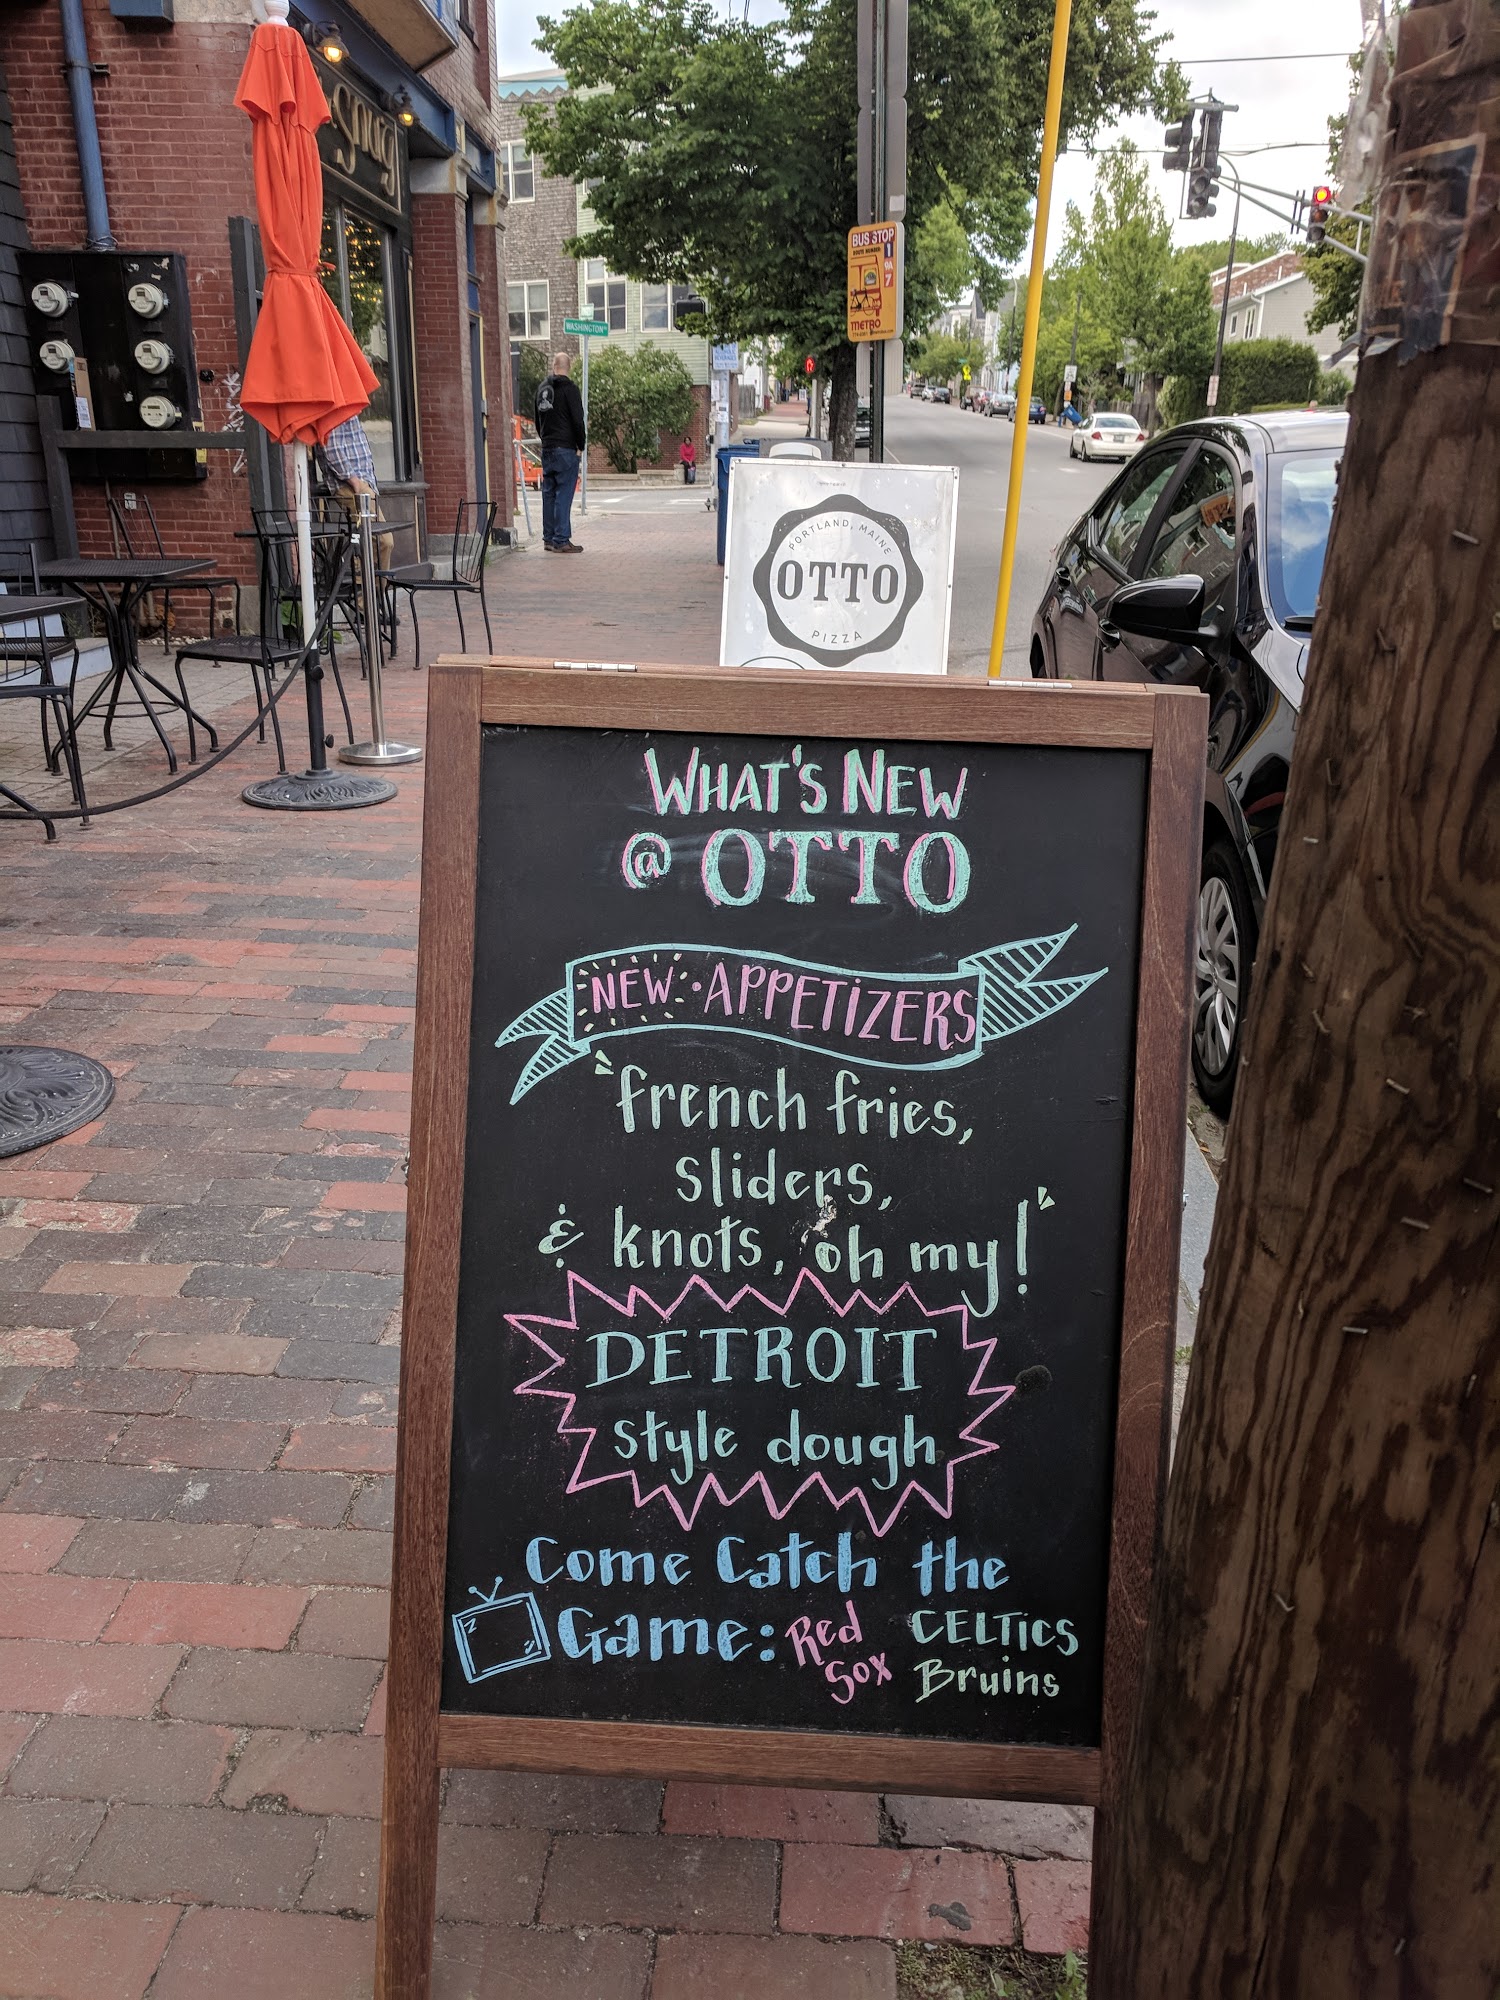 Snug
BUS STOP
ROUTE NUMBER
1
9A
7
METRO
WASHINGTON
PORTLAND, MAINE
OTTO
PIZZA
WHAT'S NEW
@ OTTO
NEW • APPETIZERS
"french fries,
sliders,
& knots, oh my!"
DETROIT
style dough
Come Catch the
Game: Red Sox
CELTICS
Bruins